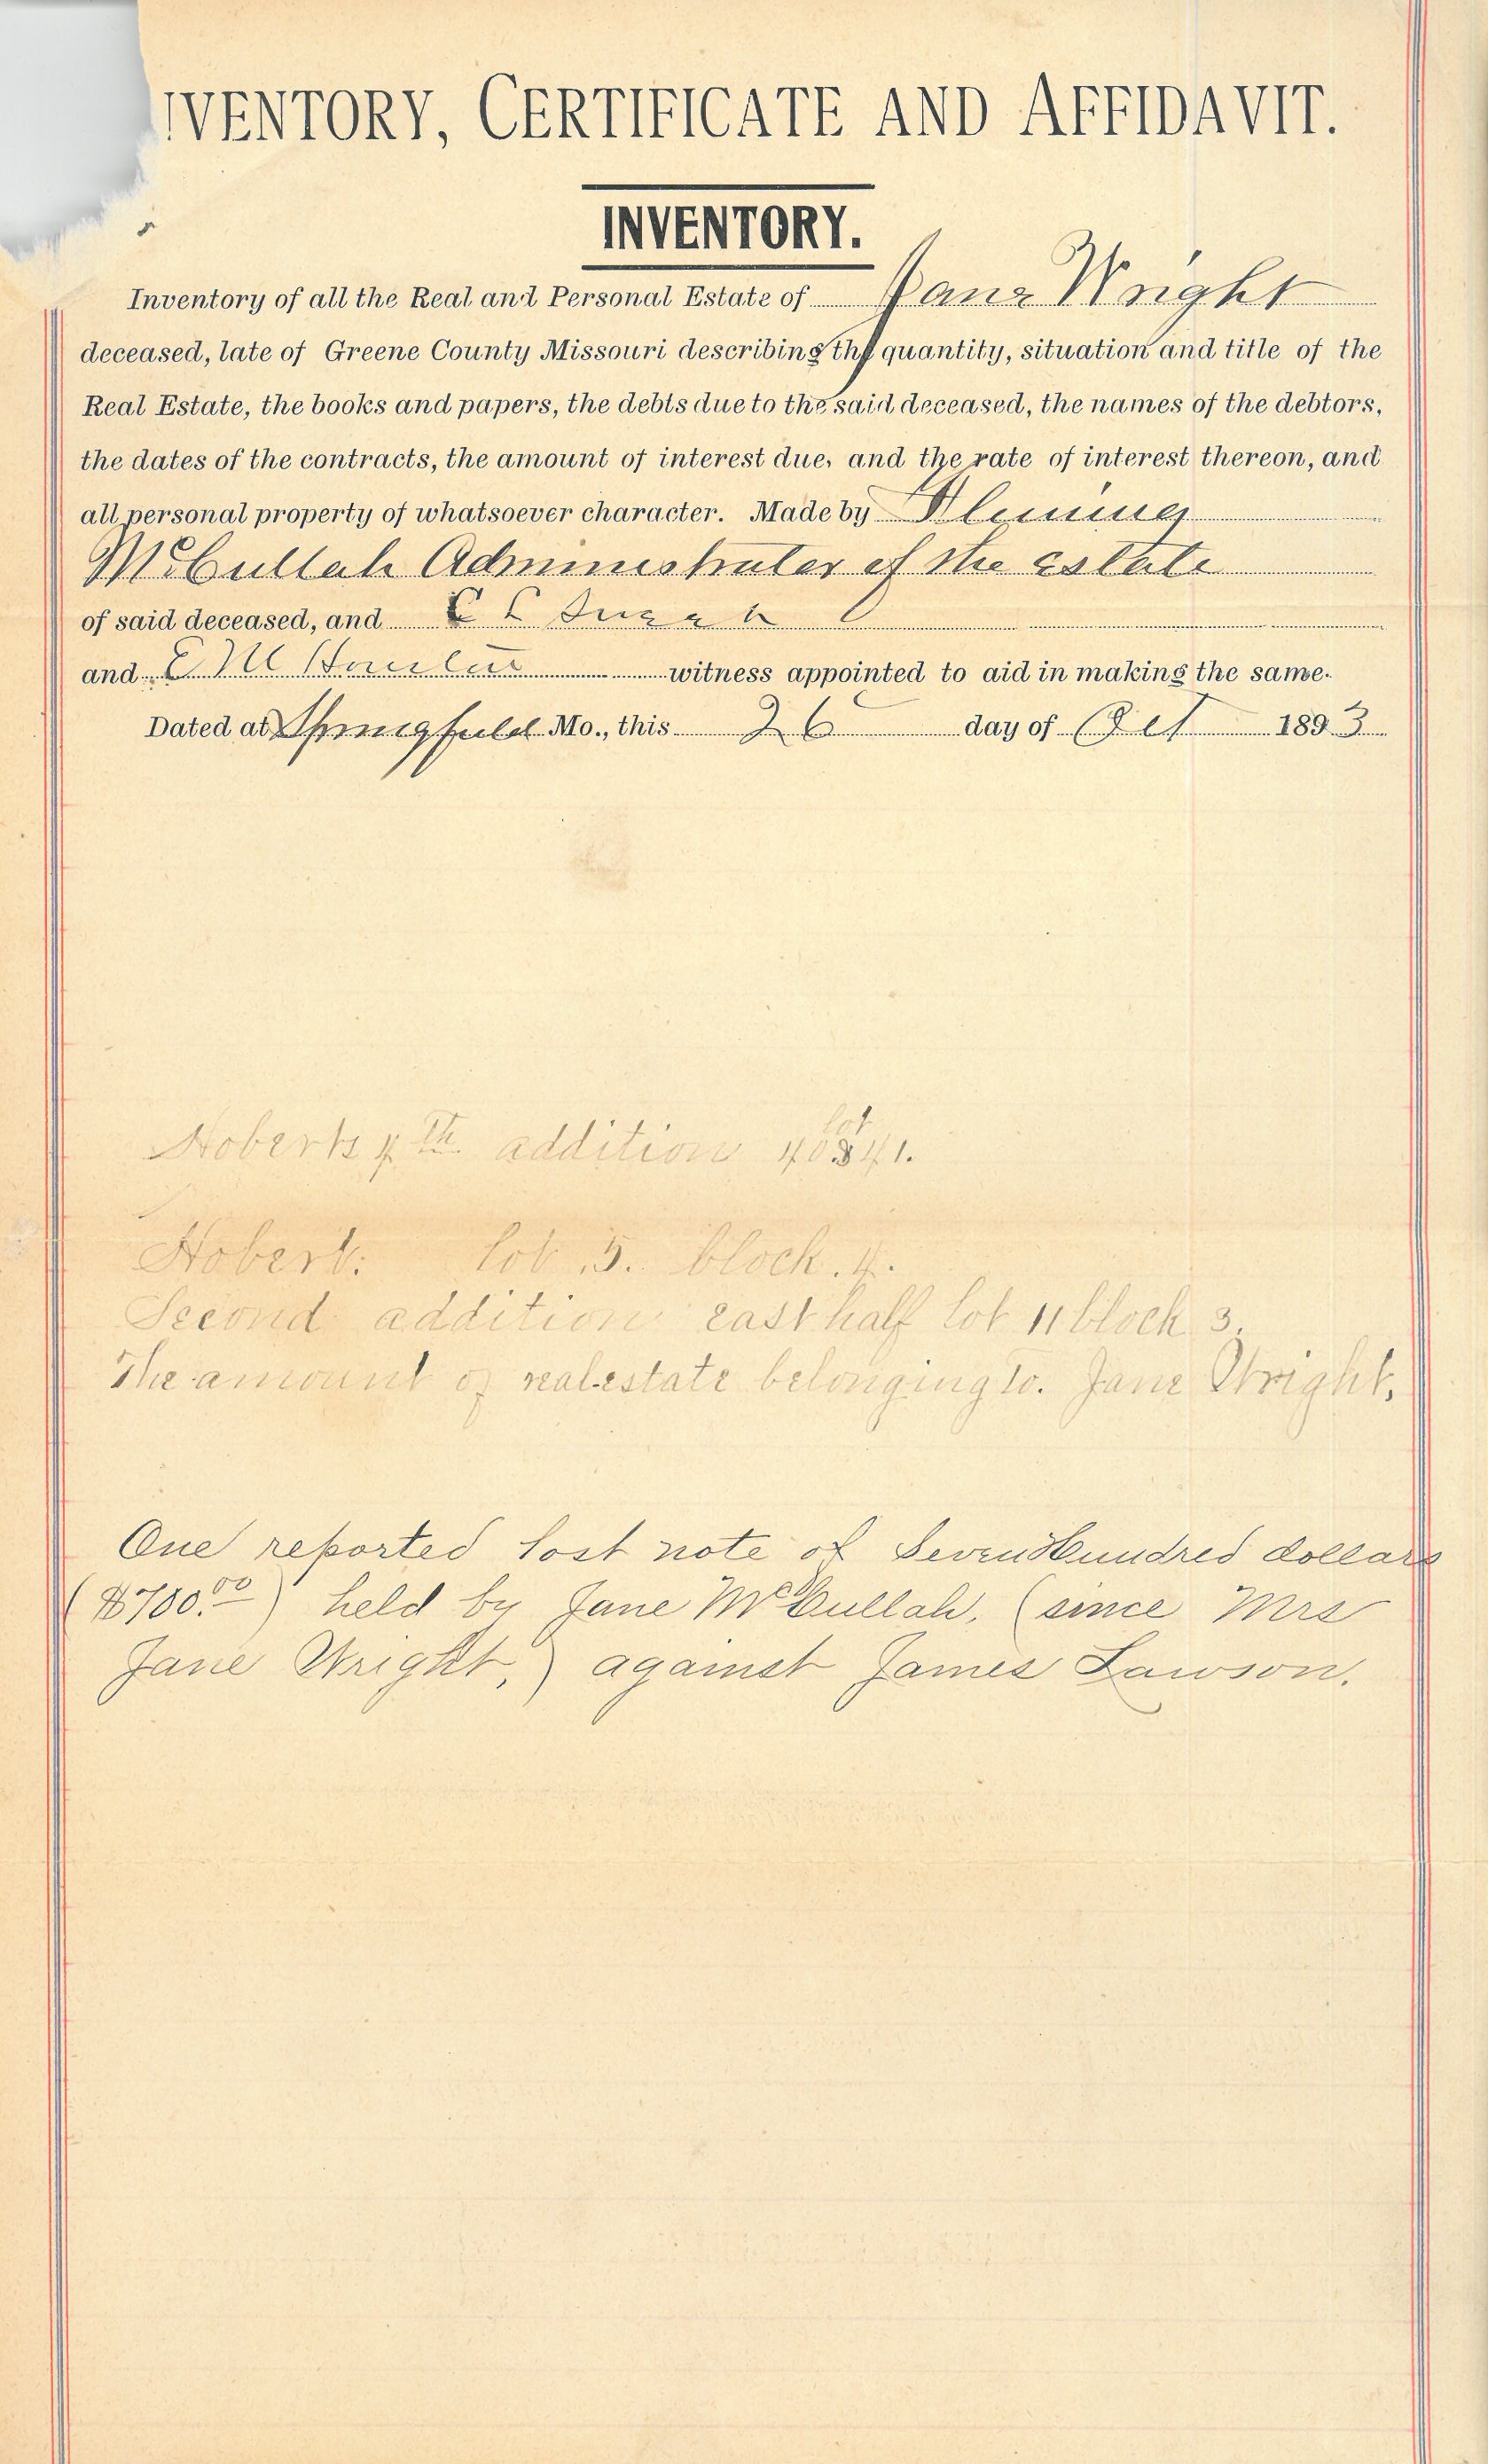 VENTORY, CERTIFICATE AND AFFIDAVIT.
INVENTORY.
Inventory of all the Real and Personal Estate of Jane Wright
deceased, late of Greene County Missouri describing the quantity, situation and title of the
Real Estate, the books and papers, the debts due to the said deceased, the names of the debtors,
the dates of the contracts, the amount of interest due, and the rate of interest thereon, and
all personal property of whatsoever character. Made by
McCullah Administrater of the estate
of said deceased, and
and E M witness appointed to aid in making the same.
Dated at Springfield Mo., this 26 day of Oct 1893
lot
Hoberts 4th addition 40 & 41.
Hobert. lot 5. block. 4.
Second addition east half lot 11 block 3.
The amount of real estate belonging to. Jane Wright.
One reported lost note of Seven Hundred dollars
($700.00) held by Jane McCullah, (since Mrs
Jane Wright,) against James Lawson.